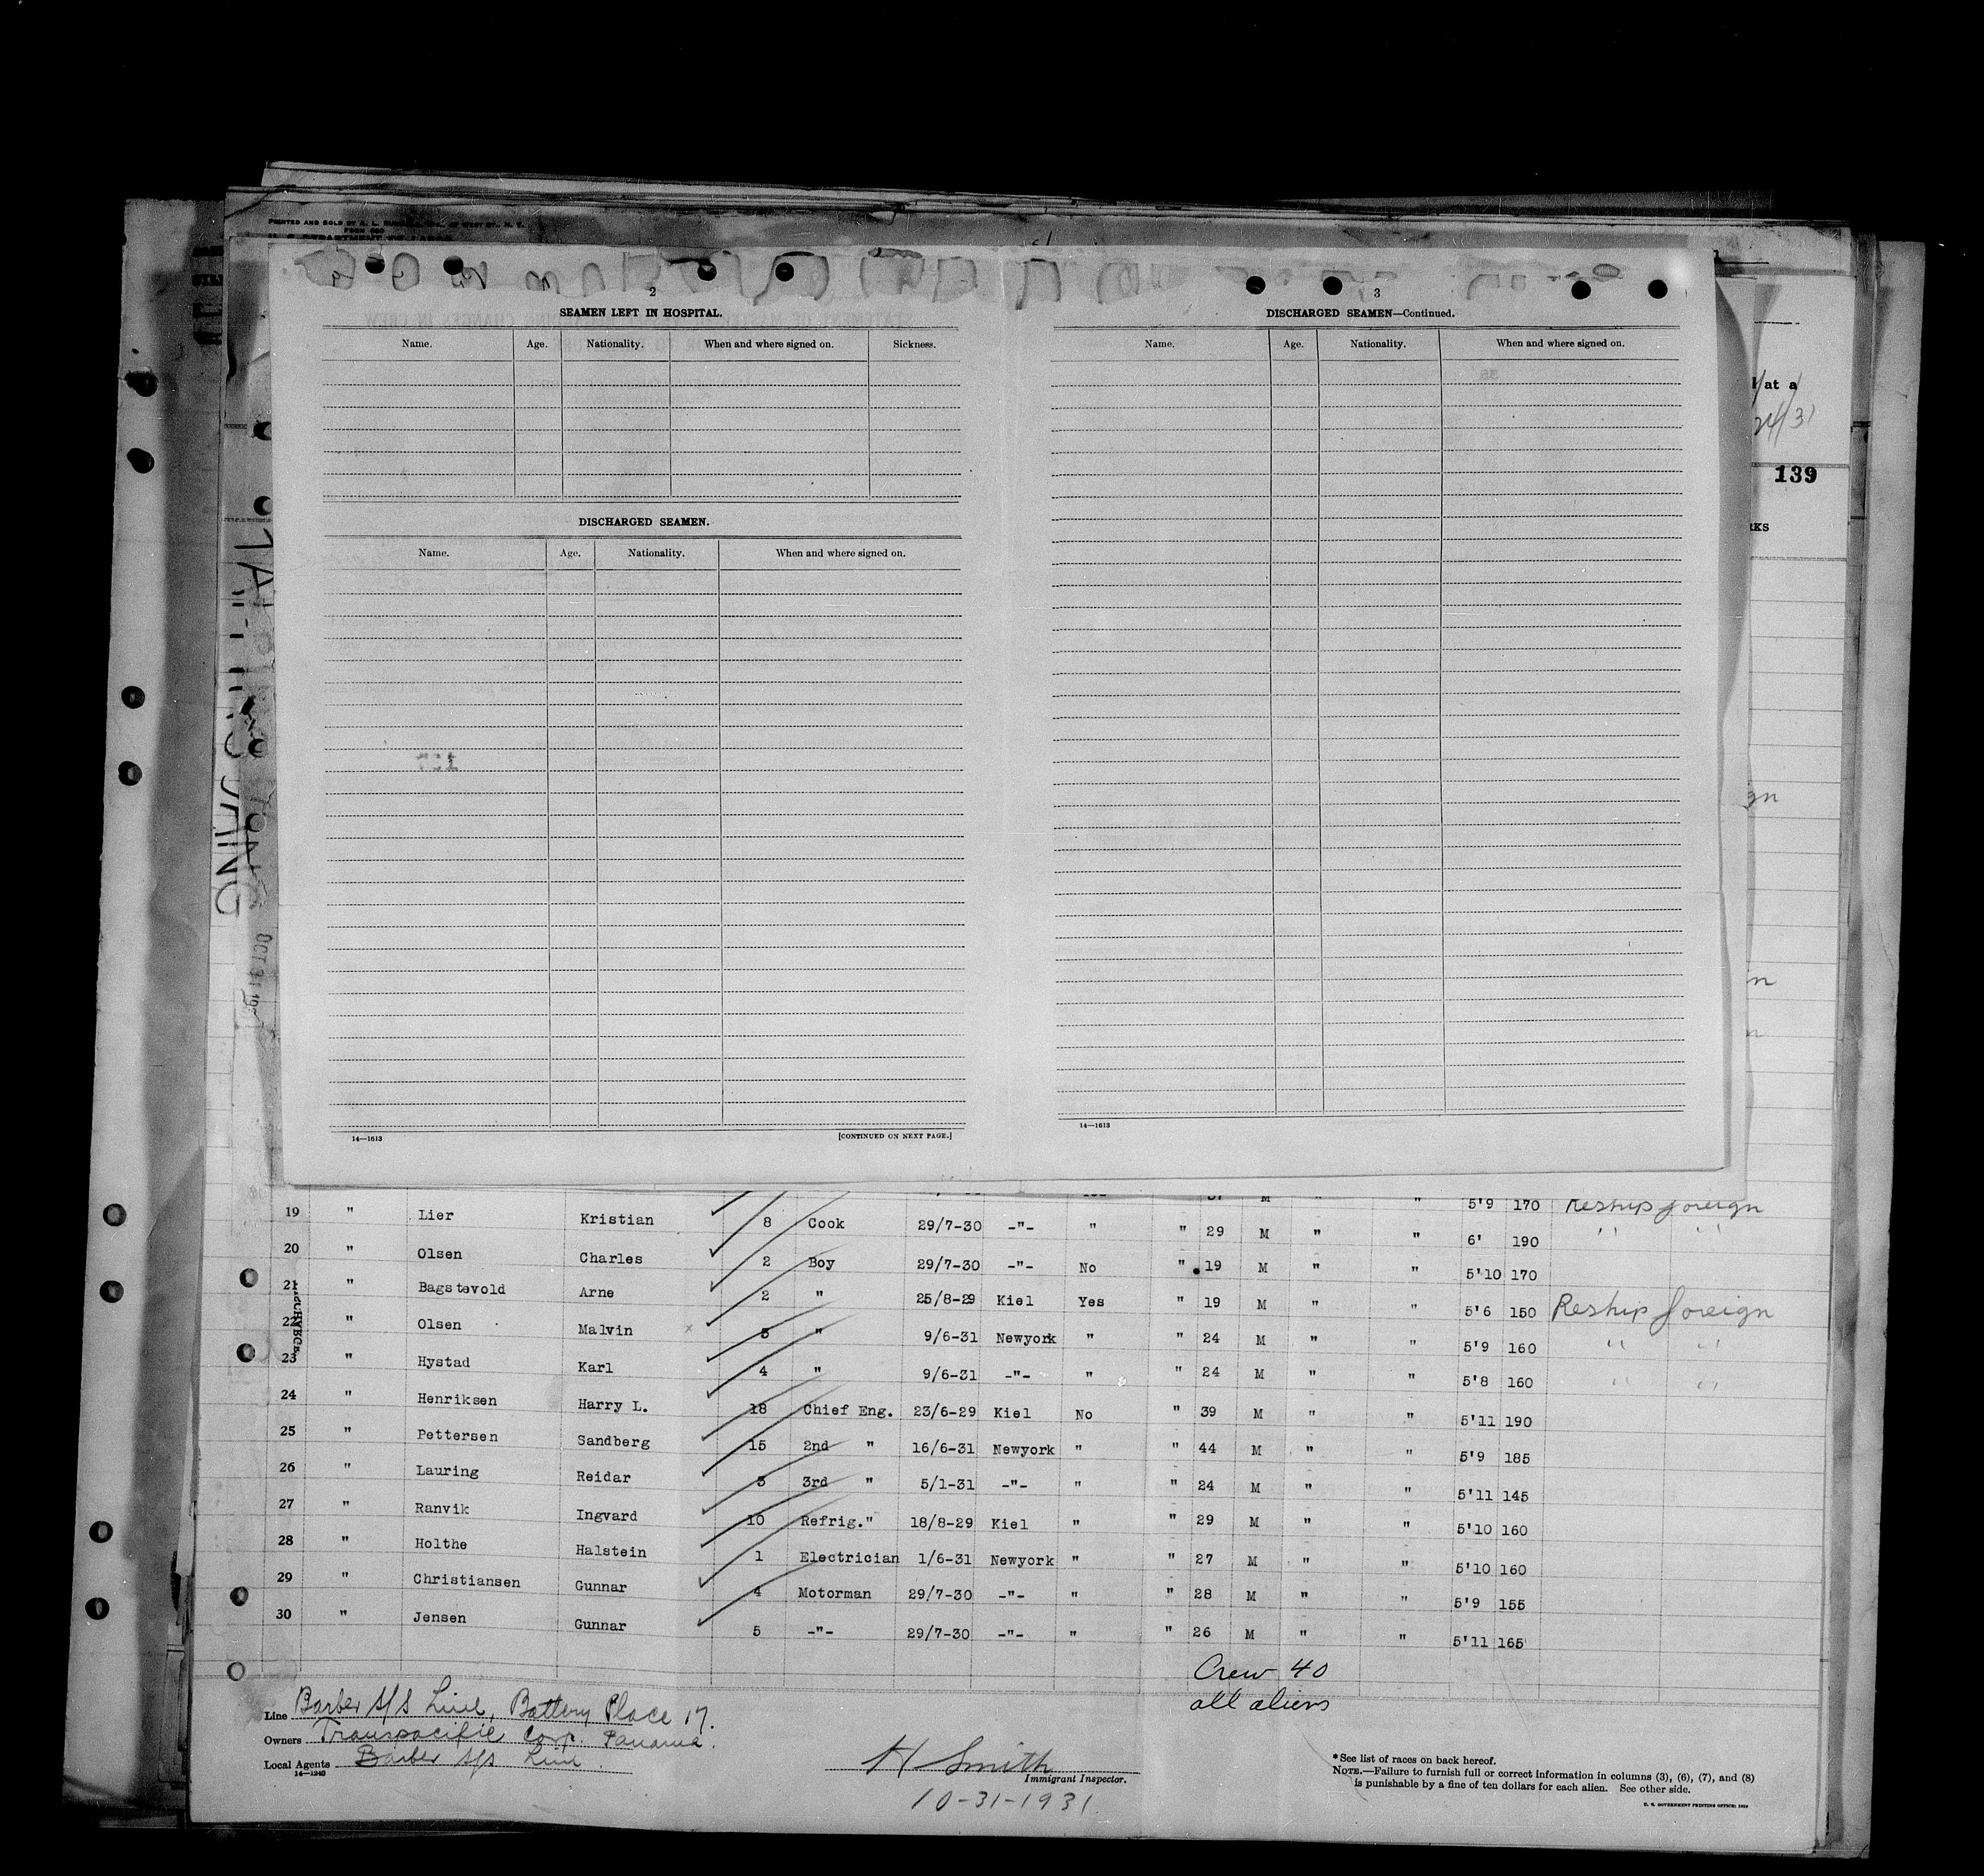 PRINTED AND SOLD BY
U. S. DEPARTMENT OF LABOR
2
SEAMEN LEFT IN HOSPITAL.
Name. Age. Nationality. When and where signed on. Sickness.
DISCHARGED SEAMEN.
Name. Age. Nationality. When and where signed on.
14—1613 [CONTINUED ON NEXT PAGE.]
3
DISCHARGED SEAMEN—Continued.
Name. Age. Nationality. When and where signed on.
14—1613
at a
24/31
139
RKS
gn
OCT 31
" " 5'9 170 Reship foreign
19 " Lier Kristian 8 Cook 29/7-30 -"- " " 29 M " " 6' 190 " "
20 " Olsen Charles 2 Boy 29/7-30 -"- No " 19 M " " 5'10 170
21 " Bagstevold Arne 2 " 25/8-29 Kiel Yes " 19 M " " 5'6 150 Reship foreign
22 " Olsen Malvin 5 " 9/6-31 Newyork " " 24 M " " 5'9 160 " "
23 " Hystad Karl 4 " 9/6-31 -"- " " 24 M " " 5'8 160 " "
24 " Henriksen Harry L. 18 Chief Eng. 23/6-29 Kiel No " 39 M " " 5'11 190
25 " Pettersen Sandberg 15 2nd " 16/6-31 Newyork " " 44 M " " 5'9 185
26 " Lauring Reidar 3 3rd " 5/1-31 -"- " " 24 M " " 5'11 145
27 " Ranvik Ingvard 10 Refrig." 18/8-29 Kiel " " 29 M " " 5'10 160
28 " Holthe Halstein 1 Electrician 1/6-31 Newyork " " 27 M " " 5'10 160
29 " Christiansen Gunnar 4 Motorman 29/7-30 -"- " " 28 M " " 5'9 155
30 " Jensen Gunnar 5 -"- 29/7-30 -"- " " 26 M " " 5'11 165
Crew 40
all aliens
Line Barber S/S Line, Battery Place 17.
Owners Transpacific Corp. Panama.
Local Agents Barber S/S Line.
14—1240
H Smith
Immigrant Inspector.
10-31-1931
*See list of races on back hereof.
NOTE.—Failure to furnish full or correct information in columns (3), (6), (7), and (8)
is punishable by a fine of ten dollars for each alien. See other side.
U. S. GOVERNMENT PRINTING OFFICE: